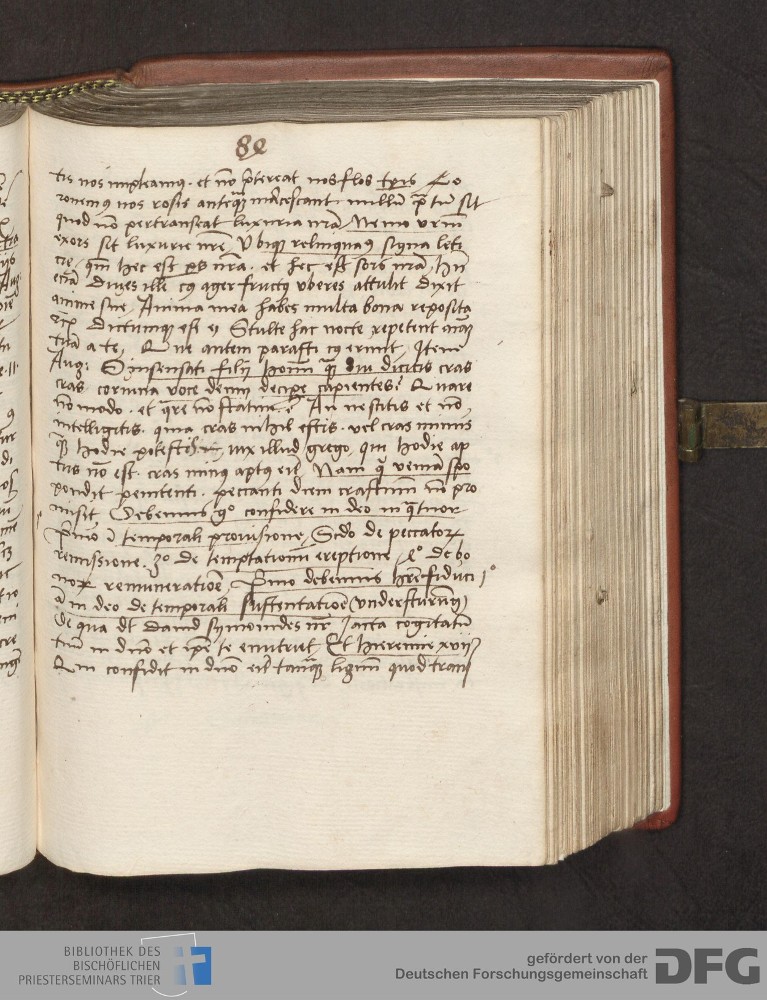 82
tis nos impleamus. et nō p̄tereat nos flos tp̄is Co
ronemus nos rosis anteq̄ȝ marcescant nullū pratū sit
quod nō pertranseat luxuria nr̄a Nemo vr̄m
exors sit luxurie nr̄e, Vbiqȝ relinquamus signa leti
cie, qm̄ hec est ps nr̄a. et hec est sors nr̄a, Hīc
eciā diues ille cuius ager fructus vberes attulit dixit
anime sue, Anima mea habes multa bona reposita
Dictumqȝ est ei Stulte hac nocte repetent aīam
tuā a te, Que autem parasti cuius erunt, Item
Aug: O insensati filij hom̄ quādiu dicitis cras
cras coruina voce decipientes? Quare
nō modo. et qr̄e nō statim? An nescitis et nō
intelligitis. quia cras nihil estis. vel cras minus
q̄ȝ hodie potestis iux illud grego, qui hodie ap
tus nō est. cras minus aptus erit, Nam qui veniā spo
pondit penitenti. peccanti diem crastinum nō pro
misit Debemus g° confidere in deo in q̄tuor
Primo ī temporali prouisione, Sc̄do de peccatorꝝ
remissione. 3° de temptationū ereptione, 4° de bo
norꝝ remuneratiōe, Primo debemus hr̄e fiduci 1°
ā in deo de temporali sustentatiōe
De qua dt̄ dauid nr̄ iacta cogitatū
tuū in dn̄o et ip̄e te enutriet, Et hieremie xvij
Qui confidit in dn̄o erit tanq̄ȝ lignum quod tran
BIBLIOTHEK DES
BISCHÖFLICHEN
PRIESTERSEMINARS TRIER
gefördert von der
Deutschen Forschungsgemeinschaft DFG